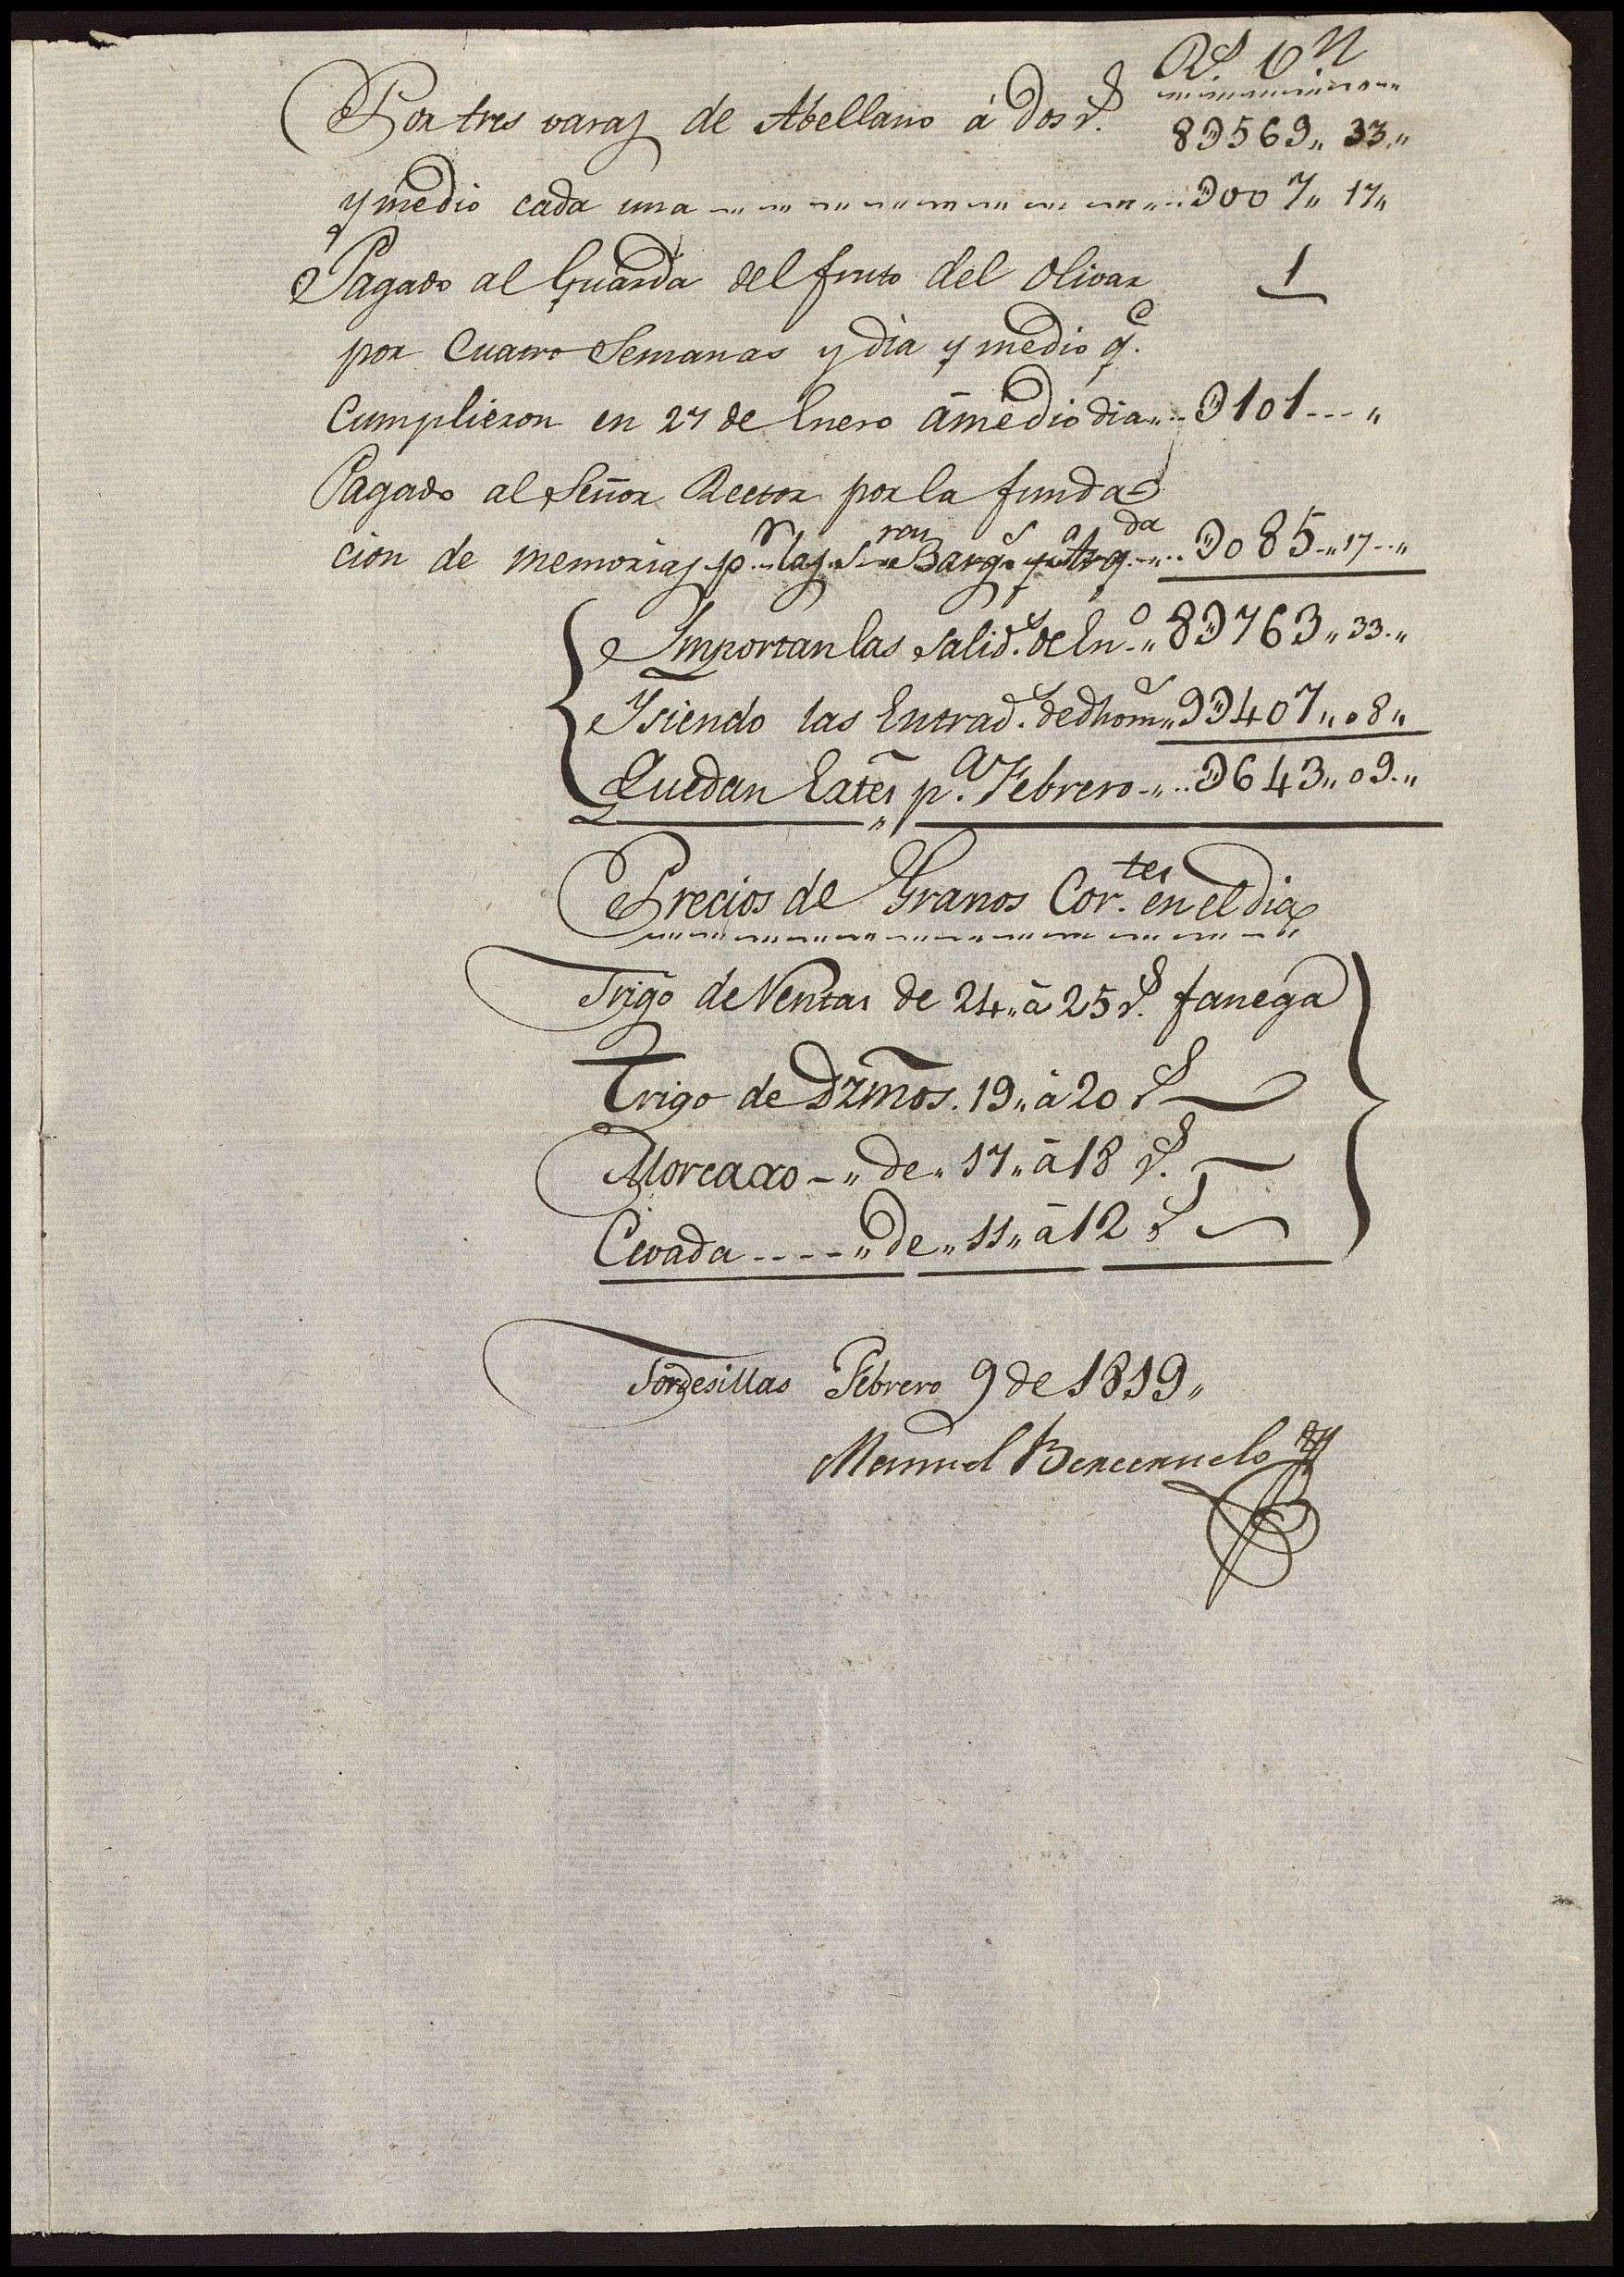 Rs. vn
Por tres varas de Abellano á dos rs. 8D569,, 33,,
y medio cada una D007,, 17,,
Pagado al Guarda del fruto del Olivar 1
por Cuatro Semanas y dia y medio qe.
Cumplieron en 27 de Enero á medio dia D101 ,,
Pagado al Señor Rector por la funda-
cion de memorias pr. las D085,, 17 ,,
Importan las Salids. de Eno. 8D763,, 33,,
Ysiendo las Entrads. de dho mes 9D407,, 08,,
Quedan Exates pa. Febrero D643,, 09,,
Precios de Granos Cortes. en el dia
Trigo de Ventas de 24,, á 25 rs. fanega
Trigo de Dzmos. 19,, á 20 rs
Morcaxo de,, 17,, á 18 rs.
Cevada de,, 11,, á 12 rs
Tordesillas Febrero 9 de 1819,,
Manuel